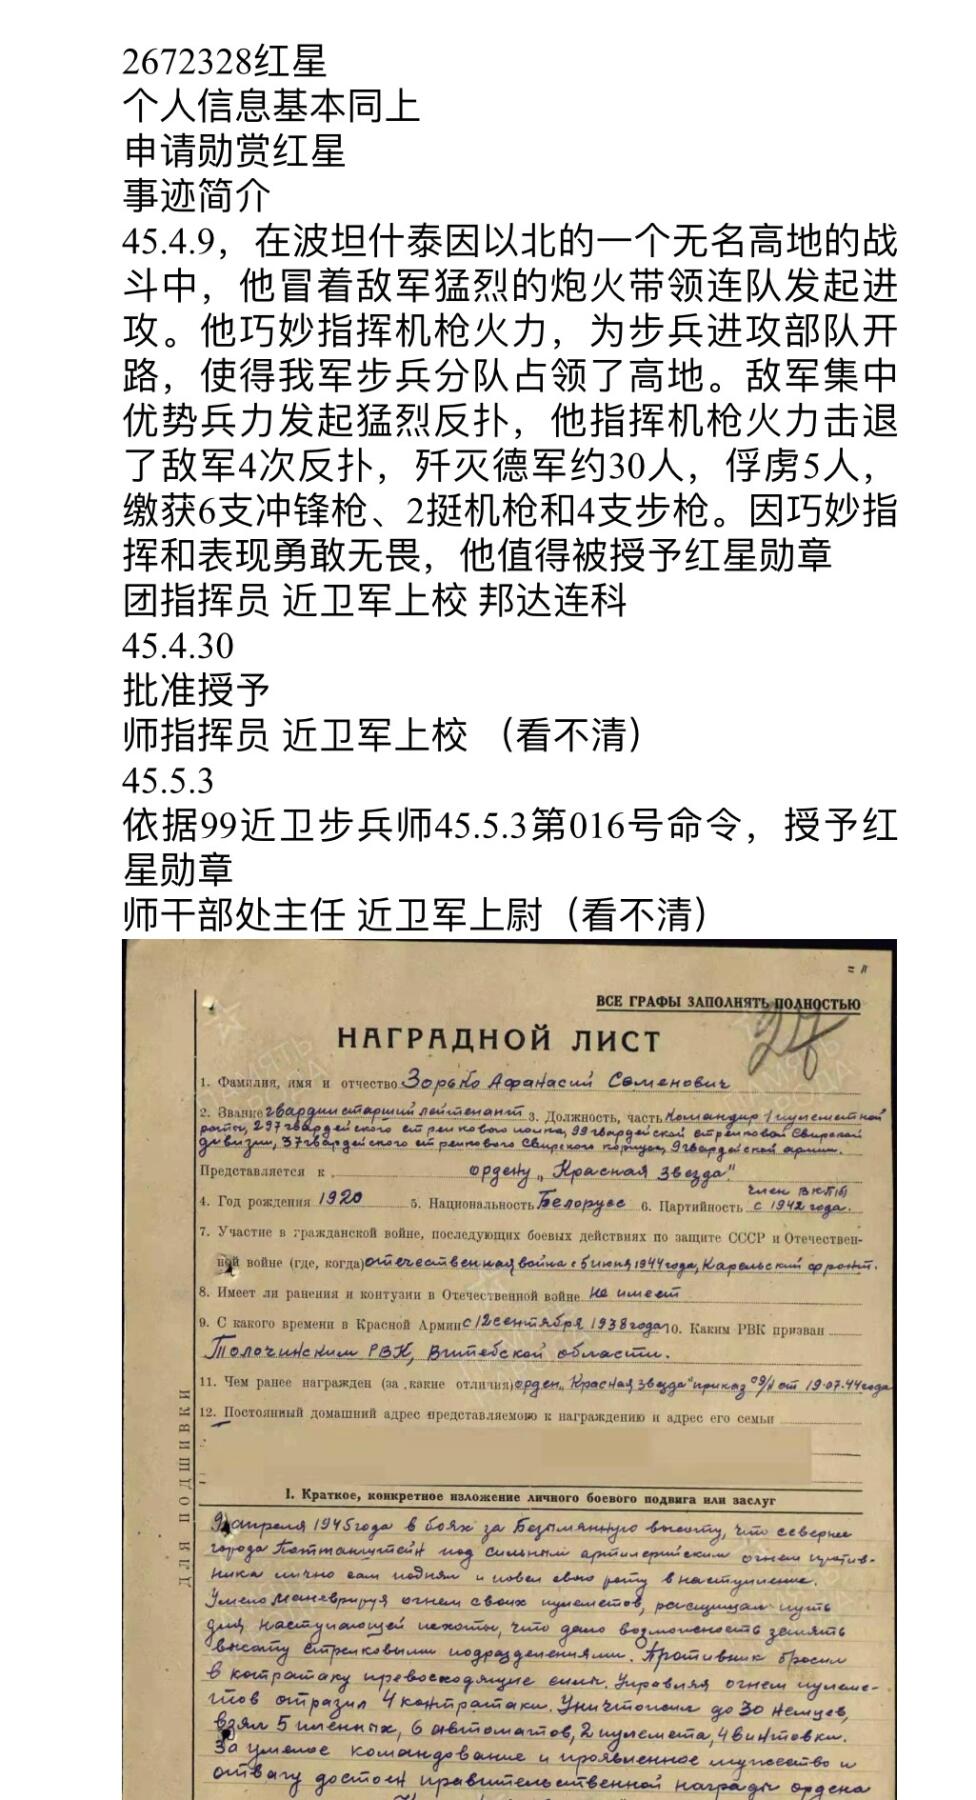 2672328红星
个人信息基本同上
申请勋赏红星
事迹简介
45.4.9，在波坦什泰因以北的一个无名高地的战
斗中，他冒着敌军猛烈的炮火带领连队发起进
攻。他巧妙指挥机枪火力，为步兵进攻部队开
路，使得我军步兵分队占领了高地。敌军集中
优势兵力发起猛烈反扑，他指挥机枪火力击退
了敌军4次反扑，歼灭德军约30人，俘虏5人，
缴获6支冲锋枪、2挺机枪和4支步枪。因巧妙指
挥和表现勇敢无畏，他值得被授予红星勋章
团指挥员 近卫军上校 邦达连科
45.4.30
批准授予
师指挥员 近卫军上校 （看不清）
45.5.3
依据99近卫步兵师45.5.3第016号命令，授予红
星勋章
师干部处主任 近卫军上尉（看不清）
ВСЕ ГРАФЫ ЗАПОЛНЯТЬ ПОЛНОСТЬЮ
НАГРАДНОЙ ЛИСТ
1. Фамилия, имя и отчество Зорько Афанасий Семенович
2. Звание гвардии старший лейтенант 3. Должность, часть Командир пулеметной
роты, 297 гвардейского стрелкового полка, 99 гвардейской стрелковой Свирской
дивизии, 37 гвардейского стрелкового Свирского корпуса, 9 гвардейской армии.
Представляется к ордену „Красная Звезда"
4. Год рождения 1920 5. Национальность Белорус 6. Партийность член ВКП(б)
с 1942 года.
7. Участие в гражданской войне, последующих боевых действиях по защите СССР и Отечествен-
ной войне (где, когда) отечественная война с 5 июня 1944 года, Карельский фронт.
8. Имеет ли ранения и контузии в Отечественной войне не имеет
9. С какого времени в Красной Армии с 12 сентября 1938 года 10. Каким РВК призван
Толочинским РВК, Витебской области.
11. Чем ранее награжден (за какие отличия) орден „Красная Звезда" приказ от 19.07.44 года
12. Постоянный домашний адрес представляемого к награждению и адрес его семьи
ДЛЯ ПОДШИВКИ
I. Краткое, конкретное изложение личного боевого подвига или заслуг
9 апреля 1945 года в боях за Безымянную высоту, что севернее
города Поттанштейн под сильным артиллерийским огнем против-
ника лично сам поднял и повел свою роту в наступление.
Умело маневрируя огнем своих пулеметов, расчищал путь
для наступающей пехоты, что дало возможность занять
высоту стрелковыми подразделениями. Противник бросил
в контратаку превосходящие силы. Управляя огнем пулеме-
тов отразил 4 контратаки. Уничтожил до 30 немцев,
взял 5 пленных, 6 автоматов, 2 пулемета, 4 винтовки.
За умелое командование и проявленное мужество и
отвагу достоен правительственной награды ордена